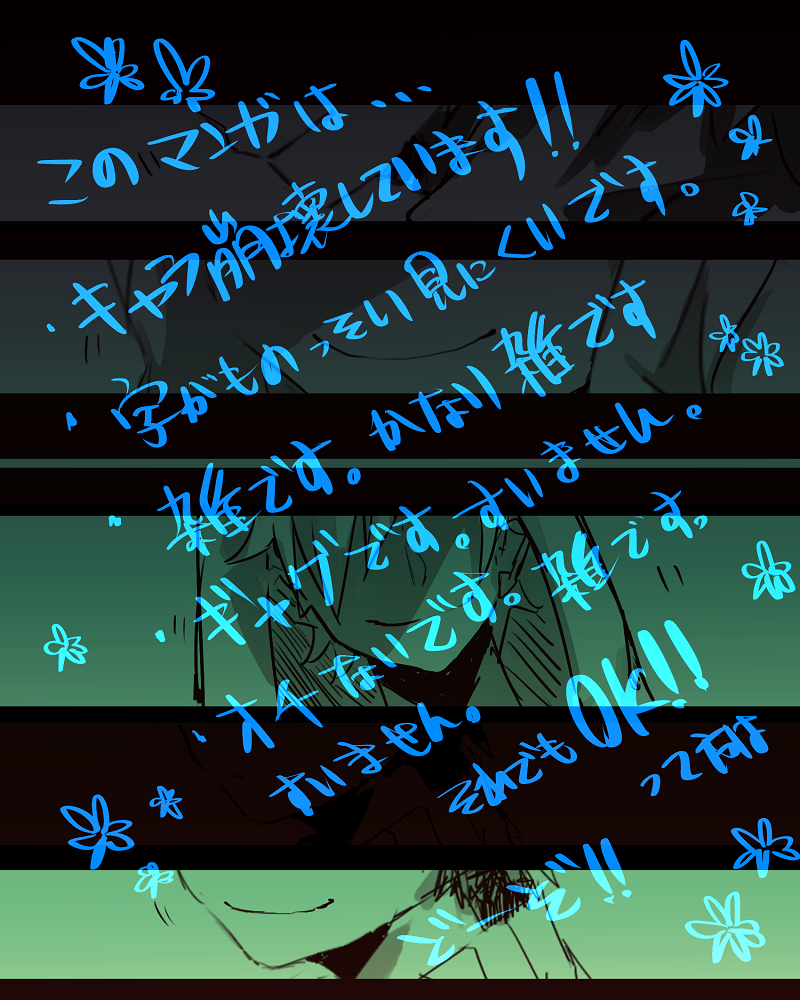 このマンガは…
・キャラ崩壊しています!!
・字がものっそい見にくいです。
・雑です。かなり雑です
・ギャグです。すいません。
・オチないです。雑です。
すいません。
それでもOK!!
って方は
どーぞ!!